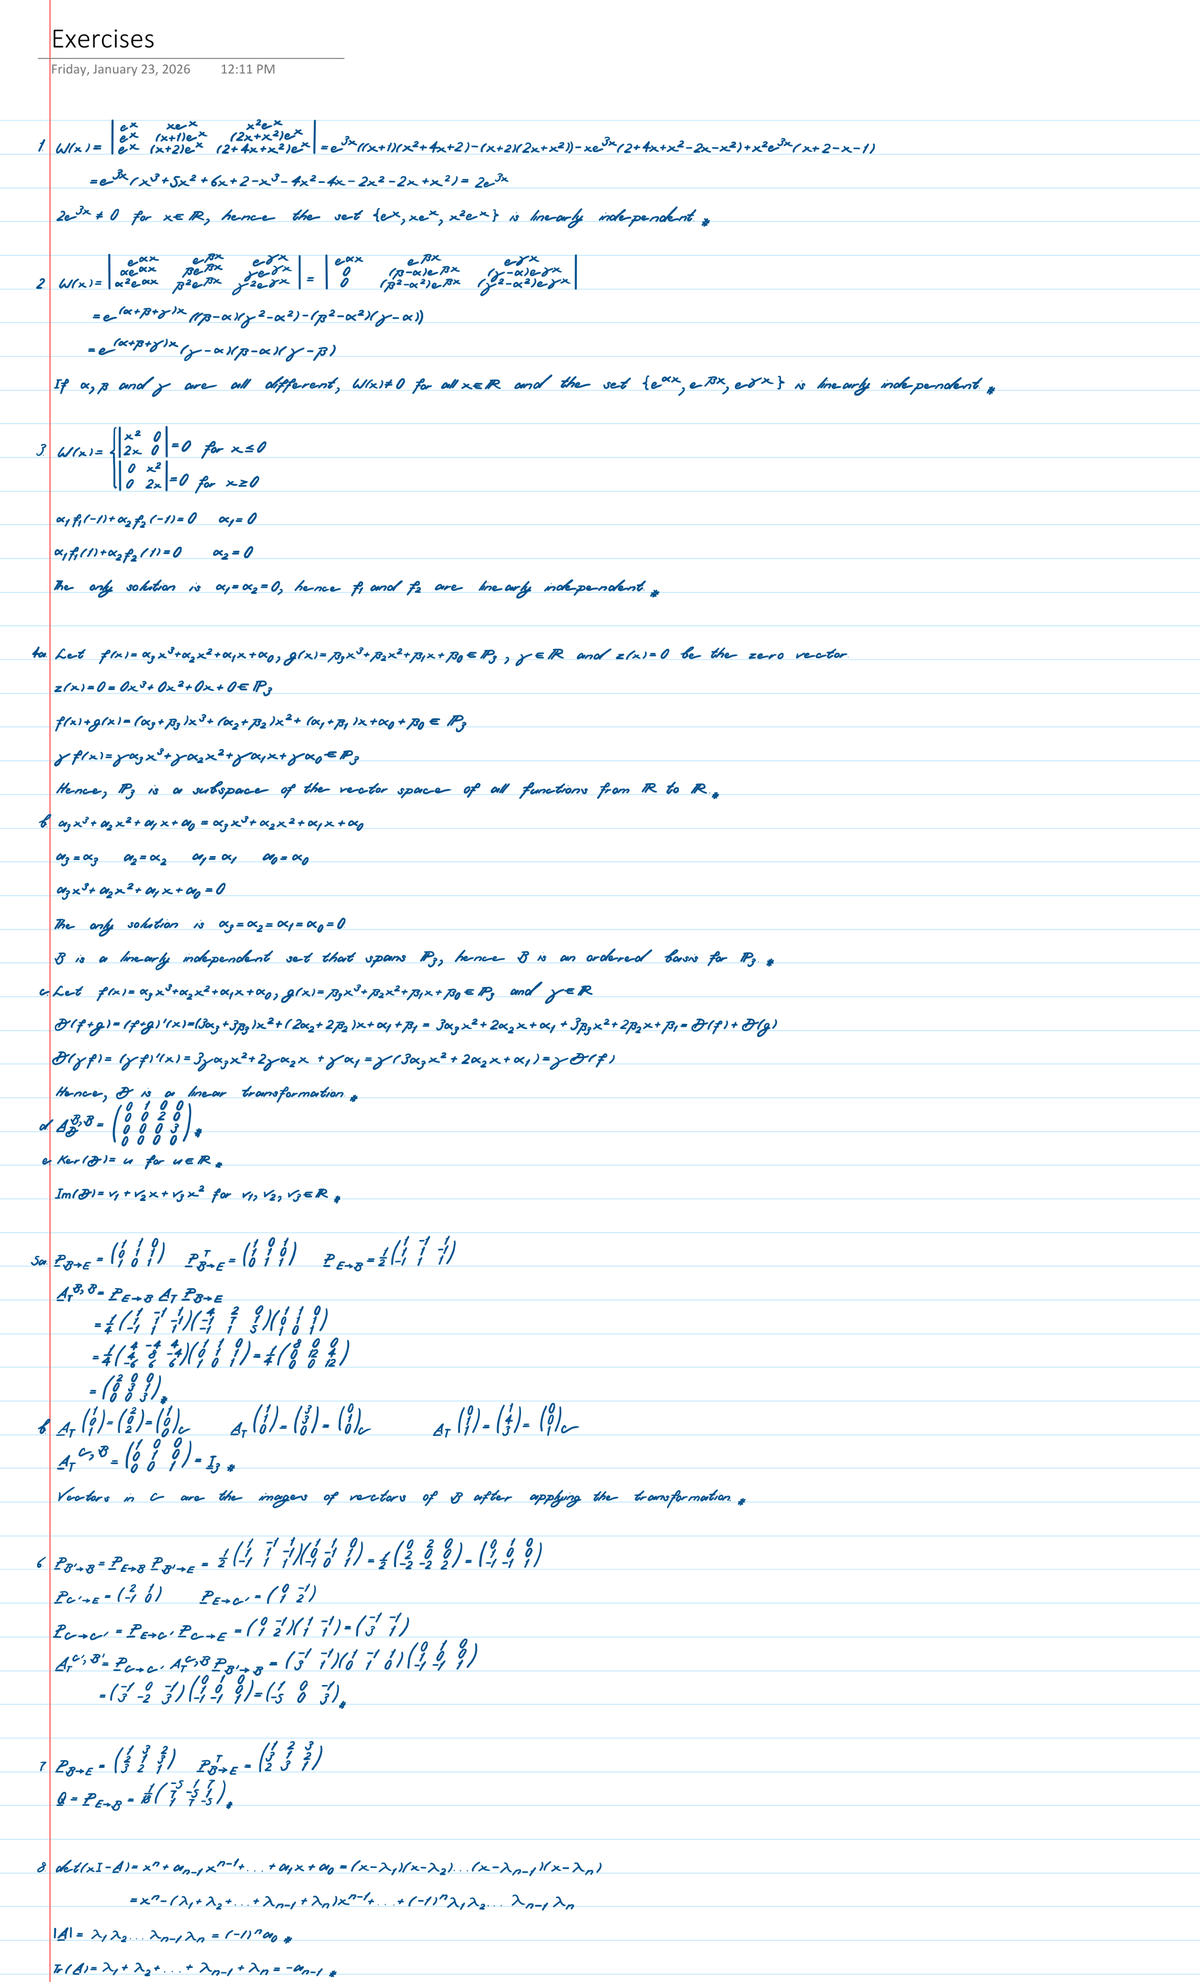 Exercises
Friday, January 23, 2026 12:11 PM
1. W(x) = |e^x xe^x x²e^x; e^x (x+1)e^x (2x+x²)e^x; e^x (x+2)e^x (2+4x+x²)e^x| = e^3x((x+1)(x²+4x+2)-(x+2)(2x+x²))-xe^3x(2+4x+x²-2x-x²)+x²e^3x(x+2-x-1)
=e^3x(x³+5x²+6x+2-x³-4x²-4x-2x²-2x+x²)=2e^3x
2e^3x≠0 for x∈ℝ, hence the set {e^x, xe^x, x²e^x} is linearly independent.
2 W(x)=|e^αx e^βx e^γx; αe^αx βe^βx γe^γx; α²e^αx β²e^βx γ²e^γx| = |e^αx e^βx e^γx; 0 (β-α)e^βx (γ-α)e^γx; 0 (β²-α²)e^βx (γ²-α²)e^γx|
=e^(α+β+γ)x((β-α)(γ²-α²)-(β²-α²)(γ-α))
=e^(α+β+γ)x(γ-α)(β-α)(γ-β)
If α, β and γ are all different, W(x)≠0 for all x∈ℝ and the set {e^αx, e^βx, e^γx} is linearly independent.
3. W(x)={|x² 0; 2x 0|=0 for x≤0
|0 x²; 0 2x|=0 for x≥0
α₁f₁(-1)+α₂f₂(-1)=0 α₁=0
α₁f₁(1)+α₂f₂(1)=0 α₂=0
The only solution is α₁=α₂=0, hence f₁ and f₂ are linearly independent.
4a. Let f(x)=α₃x³+α₂x²+α₁x+α₀, g(x)=β₃x³+β₂x²+β₁x+β₀∈ℙ₃, γ∈ℝ and z(x)=0 be the zero vector
z(x)=0=0x³+0x²+0x+0∈ℙ₃
f(x)+g(x)=(α₃+β₃)x³+(α₂+β₂)x²+(α₁+β₁)x+α₀+β₀∈ℙ₃
γf(x)=γα₃x³+γα₂x²+γα₁x+γα₀∈ℙ₃
Hence, ℙ₃ is a subspace of the vector space of all functions from ℝ to ℝ.
b a₃x³+a₂x²+a₁x+a₀=α₃x³+α₂x²+α₁x+α₀
a₃=α₃ a₂=α₂ a₁=α₁ a₀=α₀
a₃x³+a₂x²+a₁x+a₀=0
The only solution is α₃=α₂=α₁=α₀=0
B is a linearly independent set that spans ℙ₃, hence B is an ordered basis for ℙ₃.
c. Let f(x)=α₃x³+α₂x²+α₁x+α₀, g(x)=β₃x³+β₂x²+β₁x+β₀∈ℙ₃ and γ∈ℝ
D(f+g)=(f+g)'(x)=(3α₃+3β₃)x²+(2α₂+2β₂)x+α₁+β₁=3α₃x²+2α₂x+α₁+3β₃x²+2β₂x+β₁=D(f)+D(g)
D(γf)=(γf)'(x)=3γα₃x²+2γα₂x+γα₁=γ(3α₃x²+2α₂x+α₁)=γD(f)
Hence, D is a linear transformation.
d A_D^B,B=(0 1 0 0; 0 0 2 0; 0 0 0 3; 0 0 0 0)
e Ker(D)=u for u∈ℝ.
Im(D)=v₁+v₂x+v₃x² for v₁, v₂, v₃∈ℝ.
5a. P_B→E=(1 1 0; 0 1 1; 1 0 1) P^T_B→E=(1 0 1; 1 1 0; 0 1 1) P_E→B=½(1 -1 1; 1 1 -1; -1 1 1)
A_T^B,B=P_E→B A_T P_B→E
=¼(1 -1 1; 1 1 -1; -1 1 1)(4 2 0; -1 7 1; -1 1 5)(1 1 0; 0 1 1; 1 0 1)
=¼(4 -4 4; 4 8 -4; -6 6 6)(1 1 0; 0 1 1; 1 0 1)=¼(8 0 0; 0 12 4; 0 0 12)
=(2 0 0; 0 3 1; 0 0 3)
b A_T(1; 0; 1)=(2; 0; 2)=(1; 0; 0)_C A_T(1; 1; 0)=(3; 3; 0)=(0; 1; 0)_C A_T(0; 1; 1)=(1; 4; 3)=(0; 0; 1)_C
A_T^C,B=(1 0 0; 0 1 0; 0 0 1)=I₃
Vectors in C are the images of vectors of B after applying the transformation.
6 P_B'→B=P_E→B P_B'→E=½(1 -1 1; 1 1 -1; -1 1 1)(1 1 0; 0 -1 1; -1 0 1)=½(0 2 0; 2 0 0; -2 -2 2)=(0 1 0; 1 0 0; -1 -1 1)
P_C'→E=(2 1; -1 0) P_E→C'=(0 -1; 1 2)
P_C→C'=P_E→C' P_C→E=(0 -1; 1 2)(1 -1; 1 1)=(-1 -1; 3 1)
A_T^C',B'=P_C→C' A_T^C,B P_B'→B=(-1 -1; 3 1)(1 -1 1; 0 1 0)(0 1 0; 1 0 0; -1 -1 1)
=(-1 0 -1; 3 -2 3)(0 1 0; 1 0 0; -1 -1 1)=(1 0 -1; -5 0 3)
7 P_B→E=(1 3 2; 2 1 3; 3 2 1) P^T_B→E=(1 2 3; 3 1 2; 2 3 1)
Q=P_E→B=1/18(-5 1 7; 7 -5 1; 1 7 -5)
8 det(xI-A)=x^n+a_n-1 x^n-1+...+a₁x+a₀=(x-λ₁)(x-λ₂)...(x-λ_n-1)(x-λ_n)
=x^n-(λ₁+λ₂+...+λ_n-1+λ_n)x^n-1+...+(-1)^n λ₁λ₂...λ_n-1 λ_n
|A|=λ₁λ₂...λ_n-1 λ_n=(-1)^n a₀
Tr(A)=λ₁+λ₂+...+λ_n-1+λ_n=-a_n-1